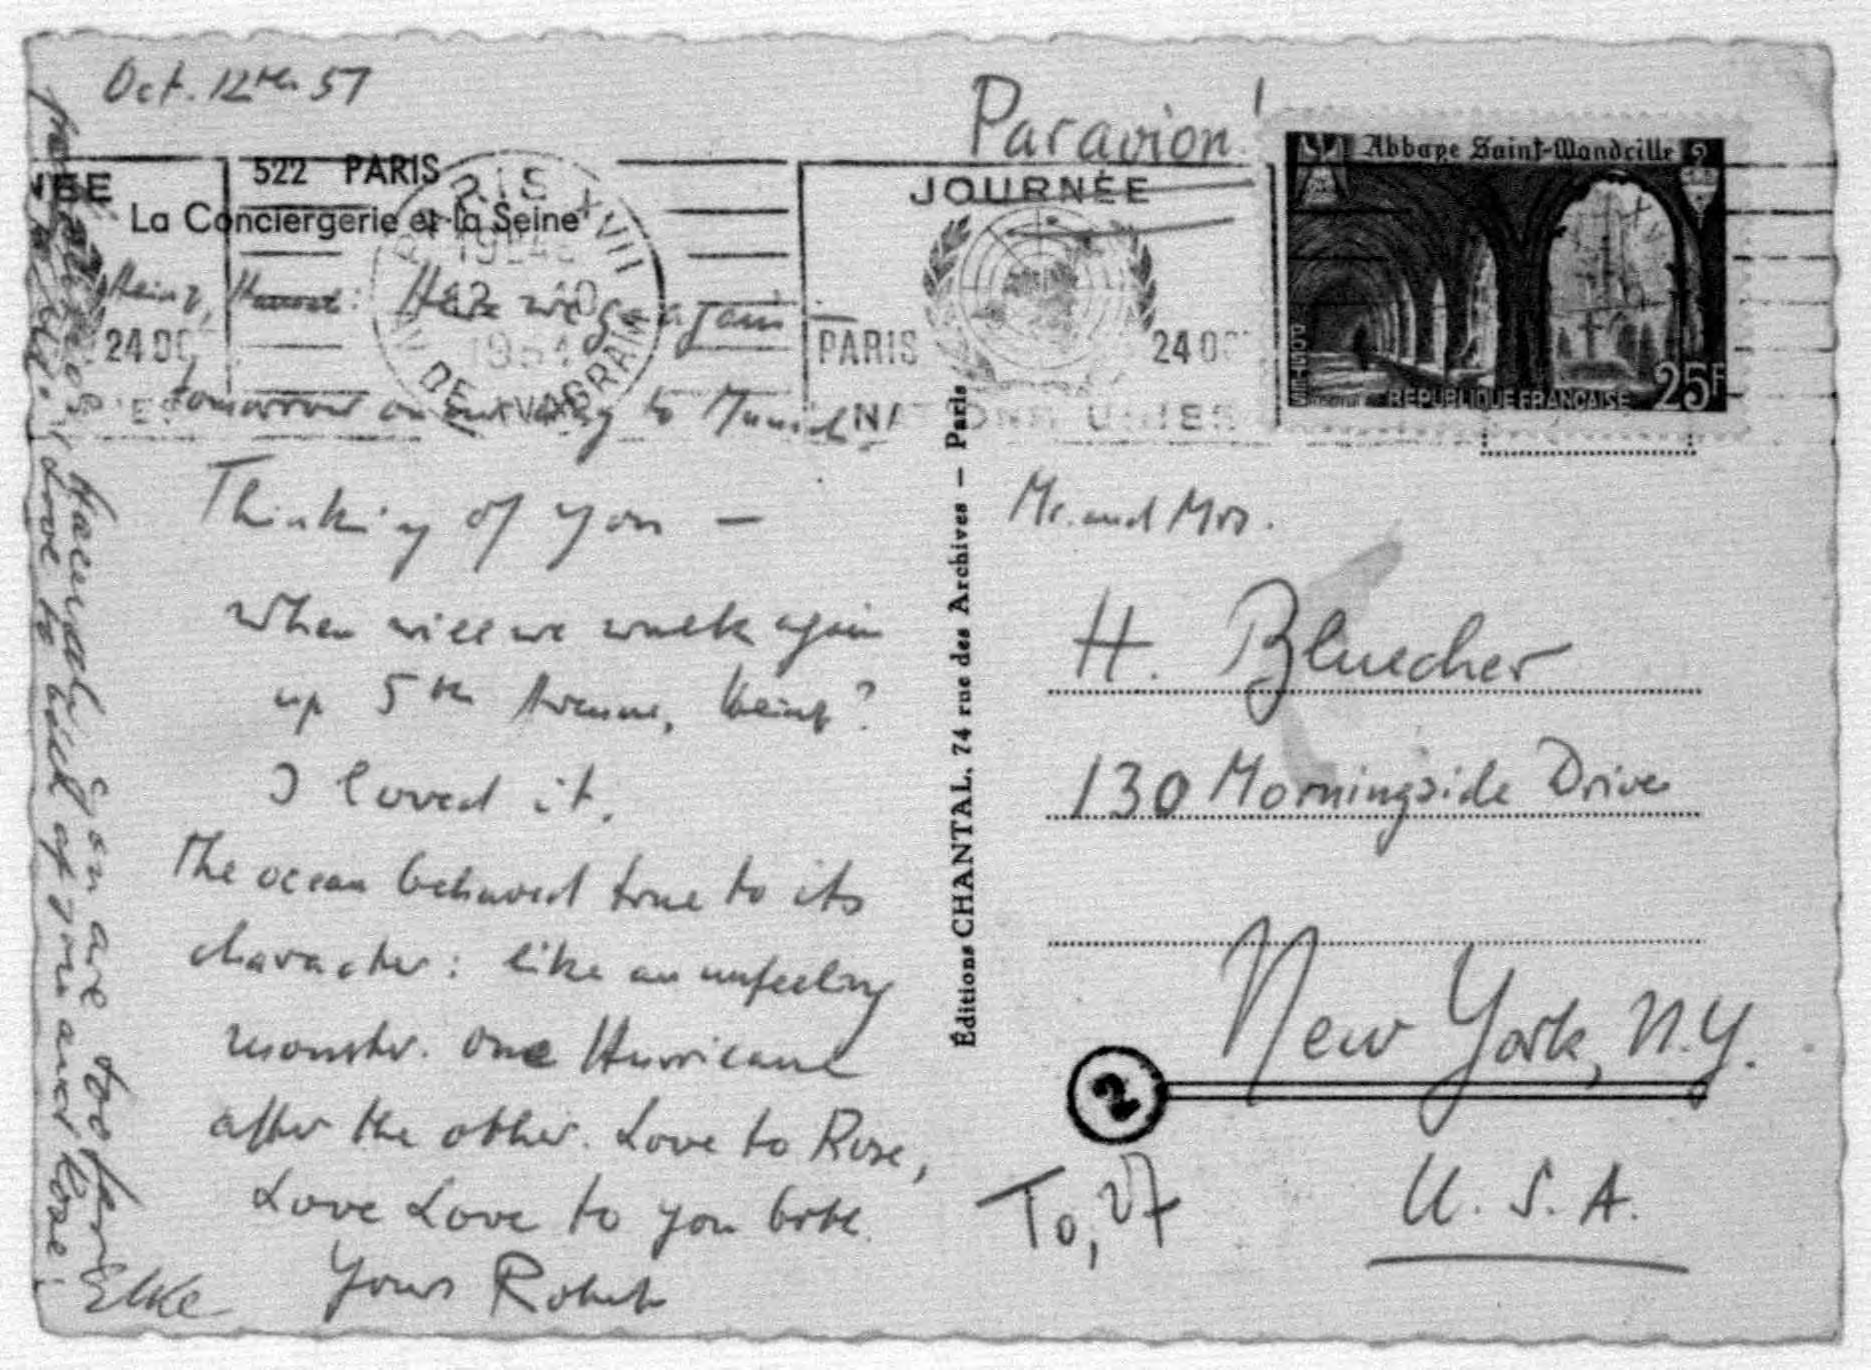 Oct. 12th 57
Paravion!
522 PARIS
La Conciergerie et la Seine
NÉE
24 OC
PARIS XVII
12 10
1954
DE WAGRAM
JOURNÉE
PARIS 24 OC
NATIONS UNIES
Abbaye Saint-Wandrille
POSTES
REPUBLIQUE FRANÇAISE 25F
Heinz, : Here we go again
tomorrow on our way to Munich.
Thinking of you —
When will we walk again
up 5th Avenue, Heinz?
I loved it.
The ocean behaved true to its
character: like an unfeeling
monster. One Hurricane
after the other. Love to Rose,
Love Love to you both.
Yours Robert
Hannah! You are too far
Love to both of you and Rose!
Elke
Éditions CHANTAL, 74 rue des Archives — Paris
Mr. and Mrs.
H. Bluecher
130 Morningside Drive
New York, N.Y.
2
U.S.A.